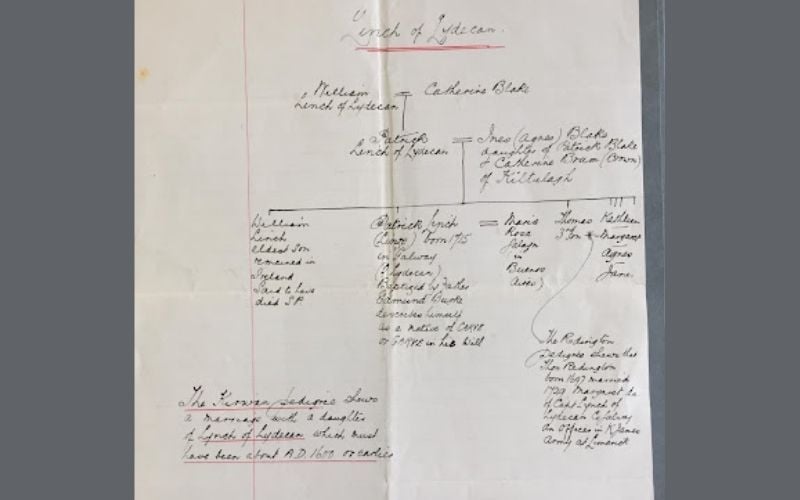 Linch of Lydecan.
William = Catherine Blake
Linch of Lydecan
Patrick = Ines (Agnes) Blake
Linch of Lydecan
daughter of Patrick Blake
& Catherine (Brown)
of Kiltulagh
William
Linch
eldest son
remained in
Ireland
Said to have
died S.P.
Patrick Lynch
born 1715
in Galway
(? Lydecan)
Baptized by Father
Edmund Burke
describes himself
as a native of
or in his Will
= Maria
Rosa
in
Buenos
Aires)
Thomas
3rd Son
Kathleen
Margaret
Agnes
Jane
The Redington
Pedigree shews that
Thos Redington
born 1697 married
1729 Margaret da
of Capt Lynch of
Lydecan Co Galway
An Officer in K James
Army at Limerick
The Kirwan pedigree shews
a marriage with a daughter
of Lynch of Lydecan which must
have been about A.D. 1600 or earlier